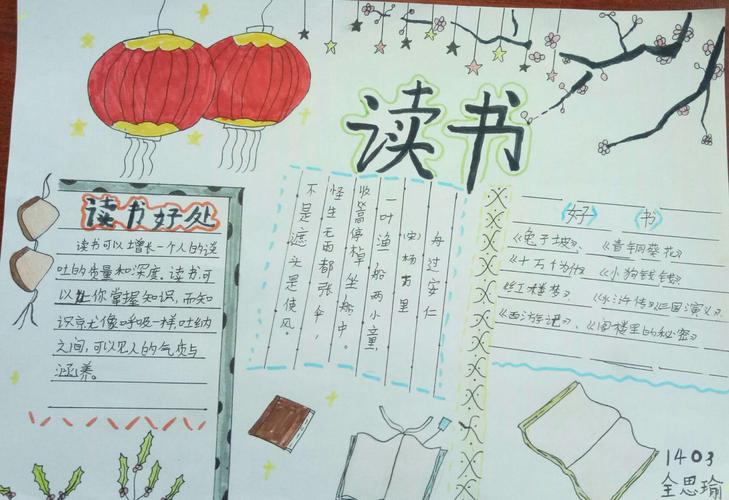 读书
读书好处
读书可以增长一个人的谈
吐的质量和深度。读书可
以让你掌握知识,而知
识就像呼吸一样,吐纳
之间,可以见人的气质与
涵养。
舟过安仁
(宋)杨万里
一叶渔船两小童
收篙停棹坐船中。
怪生无雨都张伞,
不是遮头是使风。
好 书
《兔子坡》、《青铜葵花》
《十万个为什么》、《小狗钱钱》
《红楼梦》、《水浒传》《三国演义》
《西游记》、《阁楼里的秘密》
1403
全思瑜